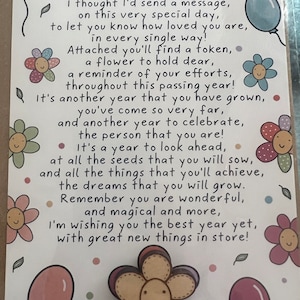 I thought I'd send a message,
on this very special day,
to let you know how loved you are,
in every single way!
Attached you'll find a token,
a flower to hold dear,
a reminder of your efforts,
throughout this passing year!
It's another year that you have grown,
you've come so very far,
and another year to celebrate,
the person that you are!
It's a year to look ahead,
at all the seeds that you will sow,
and all the things that you'll achieve,
the dreams that you will grow.
Remember you are wonderful,
and magical and more,
I'm wishing you the best year yet,
with great new things in store!